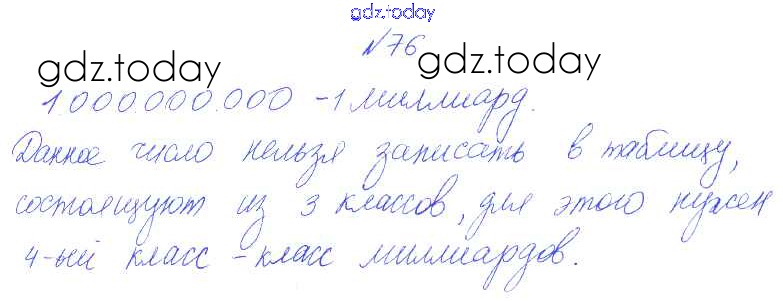 gdz.today
№76
gdz.today gdz.today
1.000.000.000 - 1 миллиард.
Данное число нельзя записать в таблицу,
состоящуют из 3 классов, для этого нужен
4-ый класс - класс миллиардов.